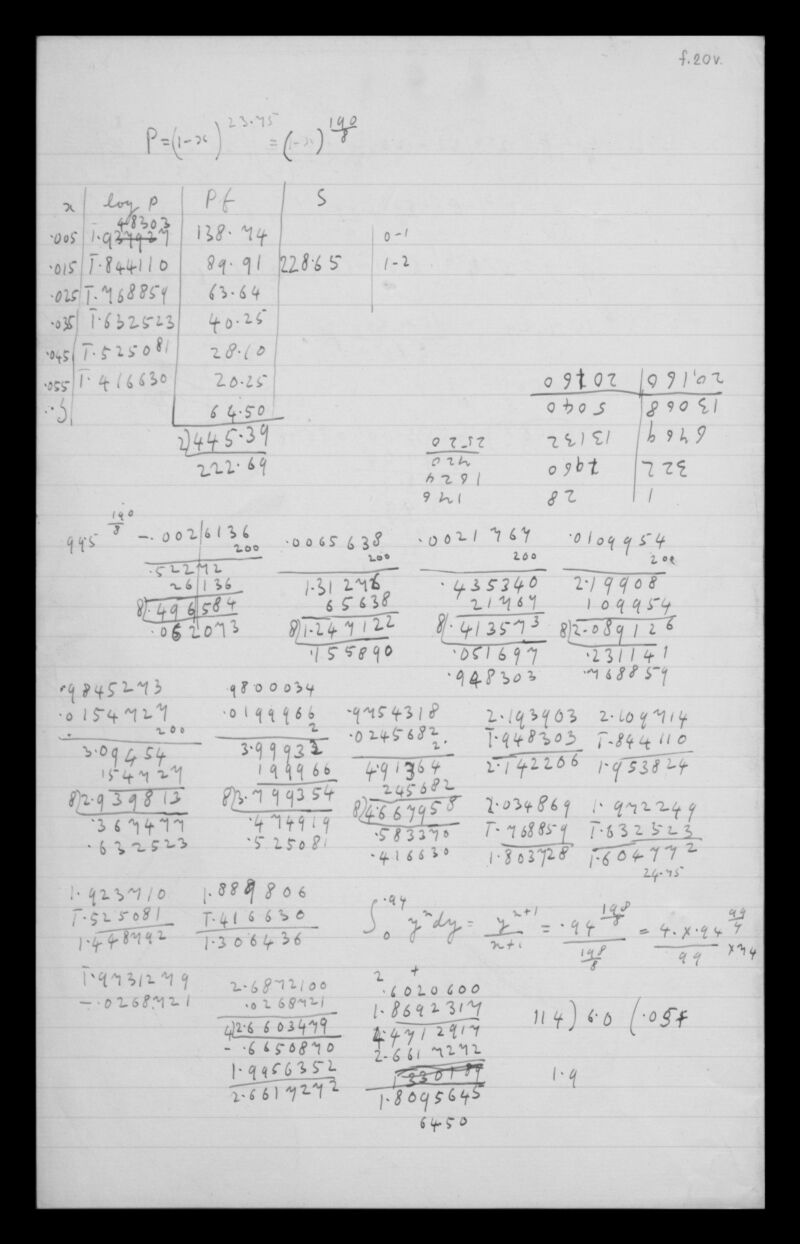 f.20v.
P = (1-x)^23.75 = (1-x)^190/8
x | log P | Pf | S
48303
.005 | 1̄.937937 | 138.74 | | 0-1
.015 | 1̄.844110 | 89.91 | 228.65 | 1-2
.025 | 1̄.768859 | 63.64
.035 | 1̄.632523 | 40.25
.045 | 1̄.525081 | 28.10
.055 | 1̄.416630 | 20.25
64.50
2)445.39
222.69
1 | 28
322 | 7960
6749 | 13132
13068 | 5040
20,160 | 20160
1746
1624
420
2520
.995^190/8
-.0026136
200
.52272
26136
8).496584
.062073
.0065638
200
1.31276
65638
8)1.247122
.155890
.0021767
200
.435340
21767
8).413573
.051697
.948303
.0109954
200
2.19908
109954
8)2.089126
.231141
.768859
.9845273
.0154727
200
3.09454
154727
8)2.939813
.367477
.632523
9800034
.0199966
2
3.99932
199966
8)3.799354
.474919
.525081
.9754318
.0245682
2.
4.91364
245682
8)4.667958
.583370
.416630
2.193903
1̄.948303
2.142206
2.109714
1̄.844110
1.953824
2.034869
1̄.768859
1.803728
1.972249
1̄.632523
1.604772
24.75
1.923710
1̄.525081
1.448792
1.889806
1̄.416630
1.306436
∫₀^.94 yⁿdy = y^n+1/n+1 = .94^198/8 / 198/8 = 4.×.94^99/4 / 99 ×74
1̄.9731279
-.0268721
2.6872100
.0268721
4)2.6603479
-.6650870
1.9956352
2.6617272
2 +
.6020600
1.8692317
4.4712917
2.6617272
1.8095645
6450
114) 6.0 (.057
1.9